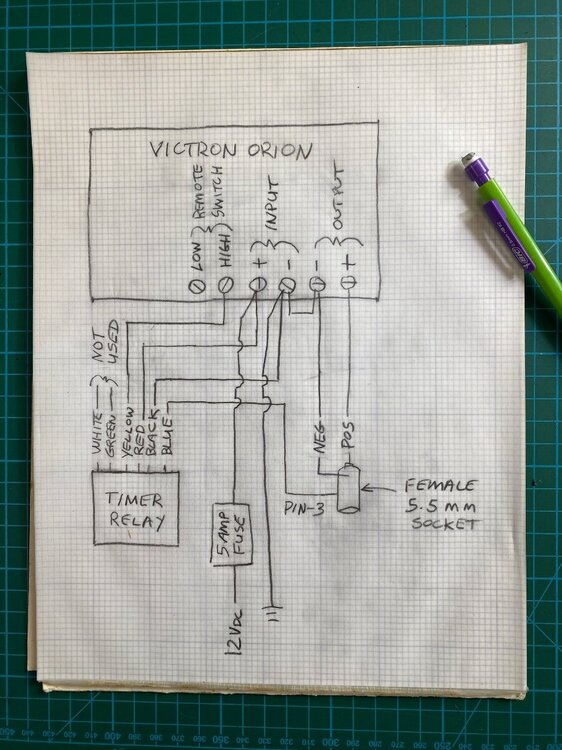 VICTRON ORION
LOW
HIGH
REMOTE
SWITCH
+
-
INPUT
-
+
OUTPUT
WHITE
GREEN
NOT
USED
YELLOW
RED
BLACK
BLUE
NEG
POS
TIMER
RELAY
5 AMP
FUSE
PIN-3
FEMALE
5.5 mm
SOCKET
12VDC